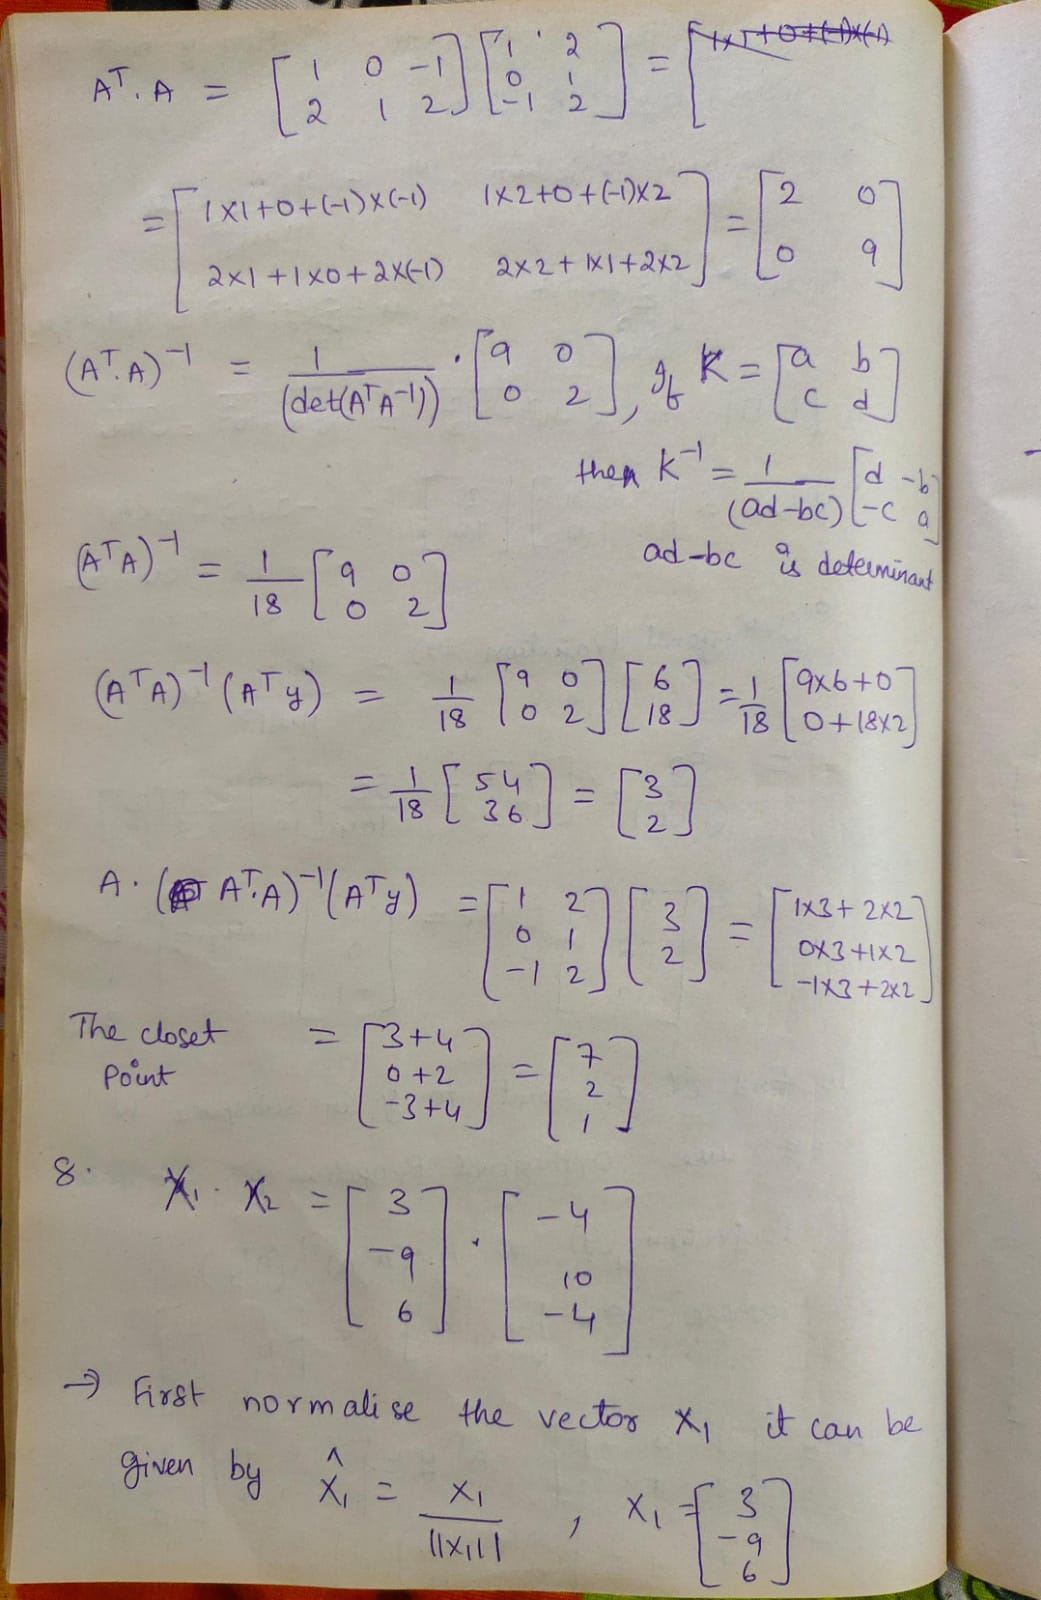 Aᵀ. A = [1 0 -1; 2 1 2] [1 2; 0 1; -1 2] = [
= [1×1+0+(-1)×(-1) 1×2+0+(-1)×2; 2×1+1×0+2×(-1) 2×2+1×1+2×2] = [2 0; 0 9]
(Aᵀ.A)⁻¹ = 1/(det(AᵀA⁻¹)) . [9 0; 0 2], If K = [a b; c d]
then K⁻¹ = 1/(ad-bc) [d -b; -c a]
ad-bc is determinant
(AᵀA)⁻¹ = 1/18 [9 0; 0 2]
(AᵀA)⁻¹(Aᵀy) = 1/18 [9 0; 0 2] [6; 18] = 1/18 [9×6+0; 0+18×2]
= 1/18 [54; 36] = [3; 2]
A. (Aᵀ.A)⁻¹(Aᵀy) = [1 2; 0 1; -1 2] [3; 2] = [1×3+2×2; 0×3+1×2; -1×3+2×2]
The closet point = [3+4; 0+2; -3+4] = [7; 2; 1]
8. X₁ . X₂ = [3; -9; 6] . [-4; 10; -4]
→ First normalise the vector X₁ it can be
given by X̂₁ = X₁/||X₁||, X₁ = [3; -9; 6]